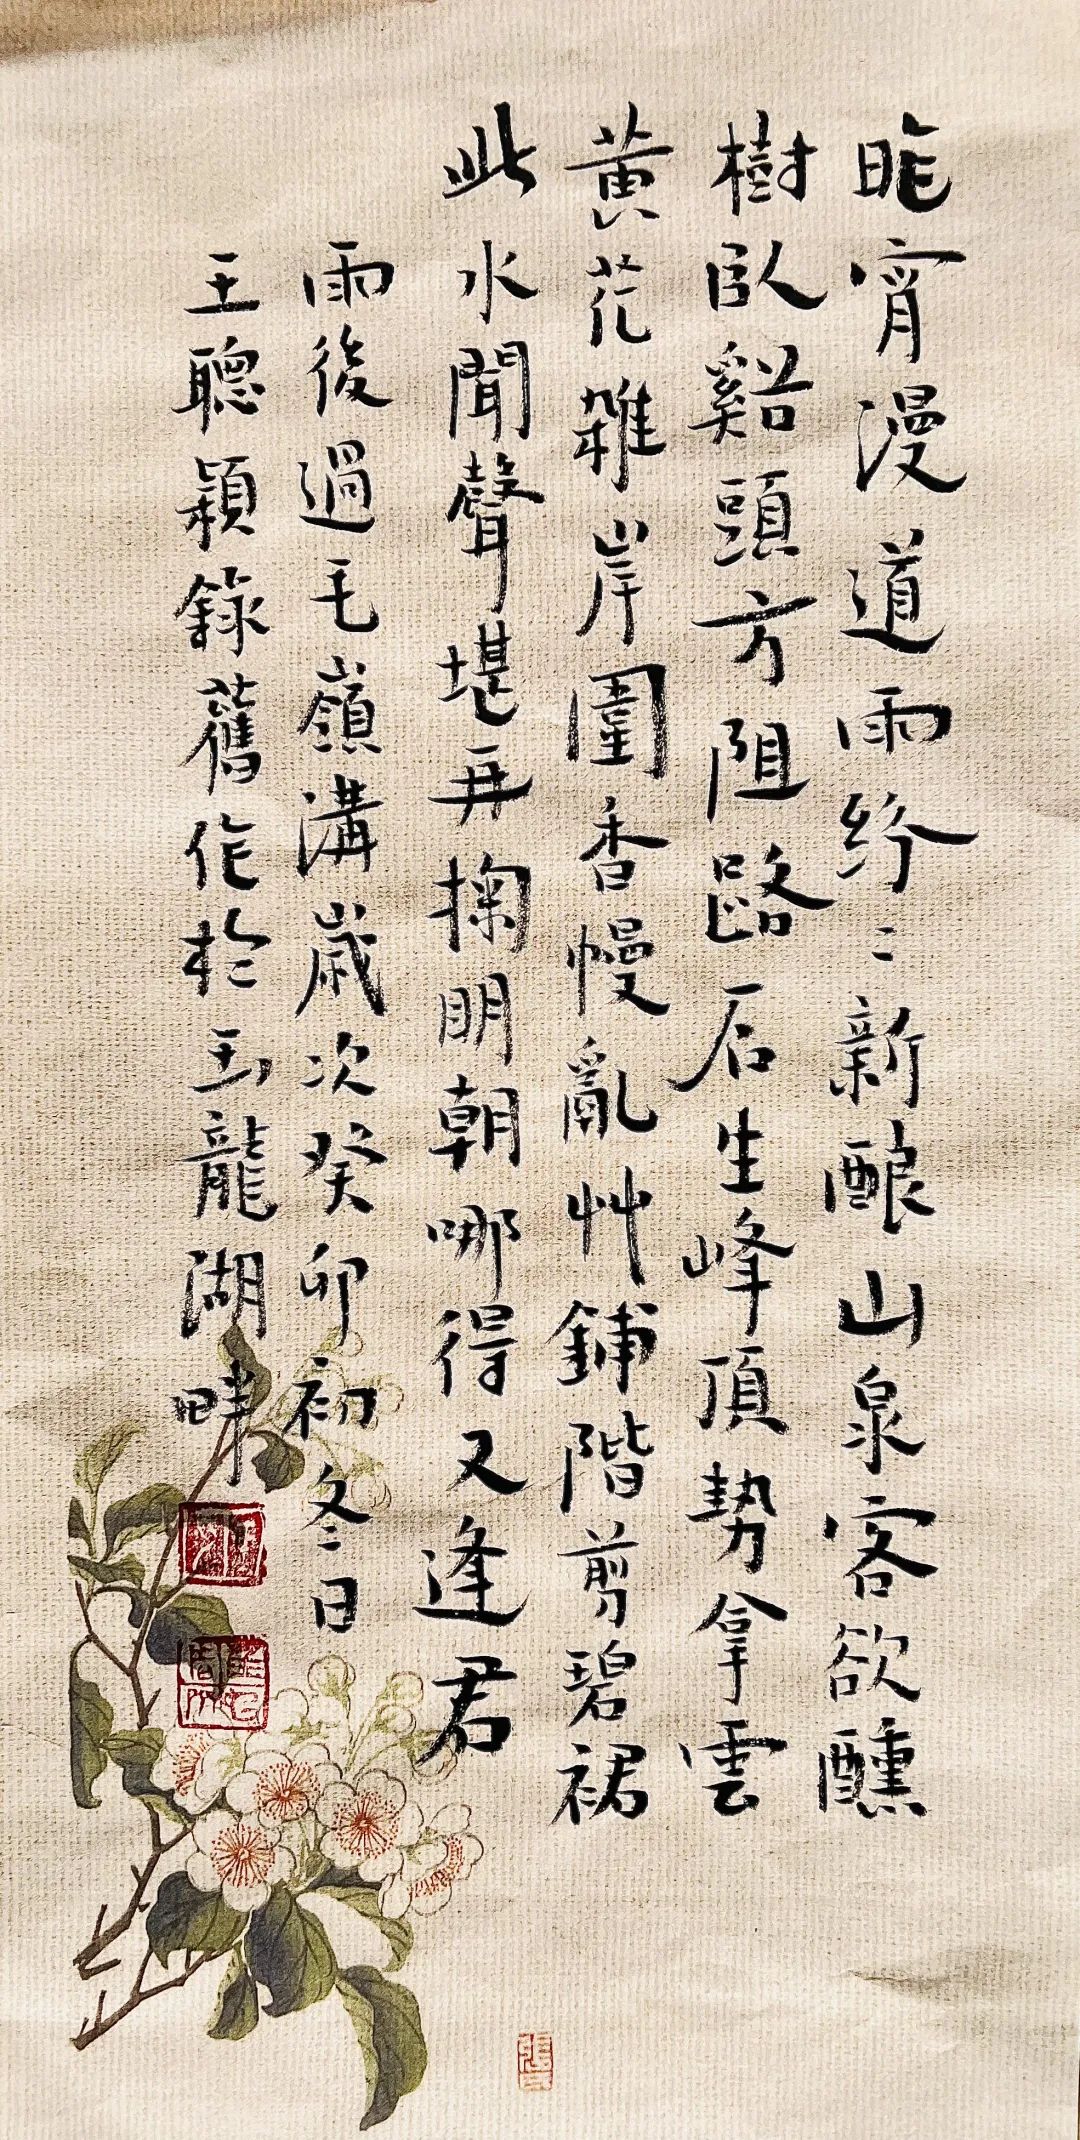 昨宵漫道雨紛〻新酿山泉客欲醺
樹臥谿頭方阻路石生峰頂勢拿雲
黃花雜岸圍香幔亂艸鋪階剪碧裙
此水聞聲堪再掬明朝哪得又逢君
雨後過毛嶺溝歲次癸卯初冬〻日
王聰穎錄舊作於玉龍湖畔